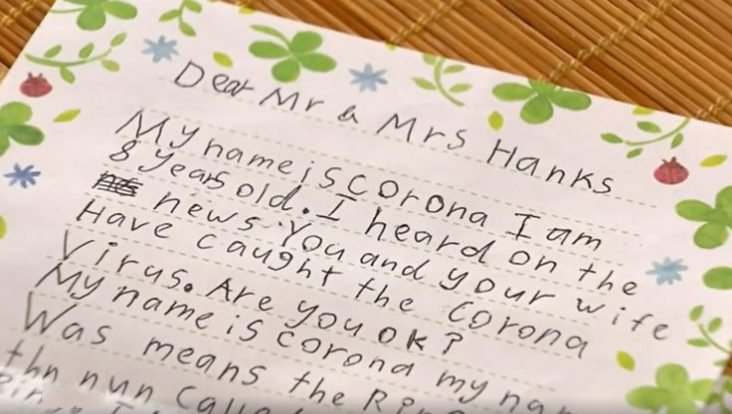 Dear Mr & Mrs Hanks
My name is corona I am
8 years old. I heard on the
news. You and your wife
Have caught the corona
Virus. Are you ok?
My name is corona my na
Was means the Rin
thn nun Call